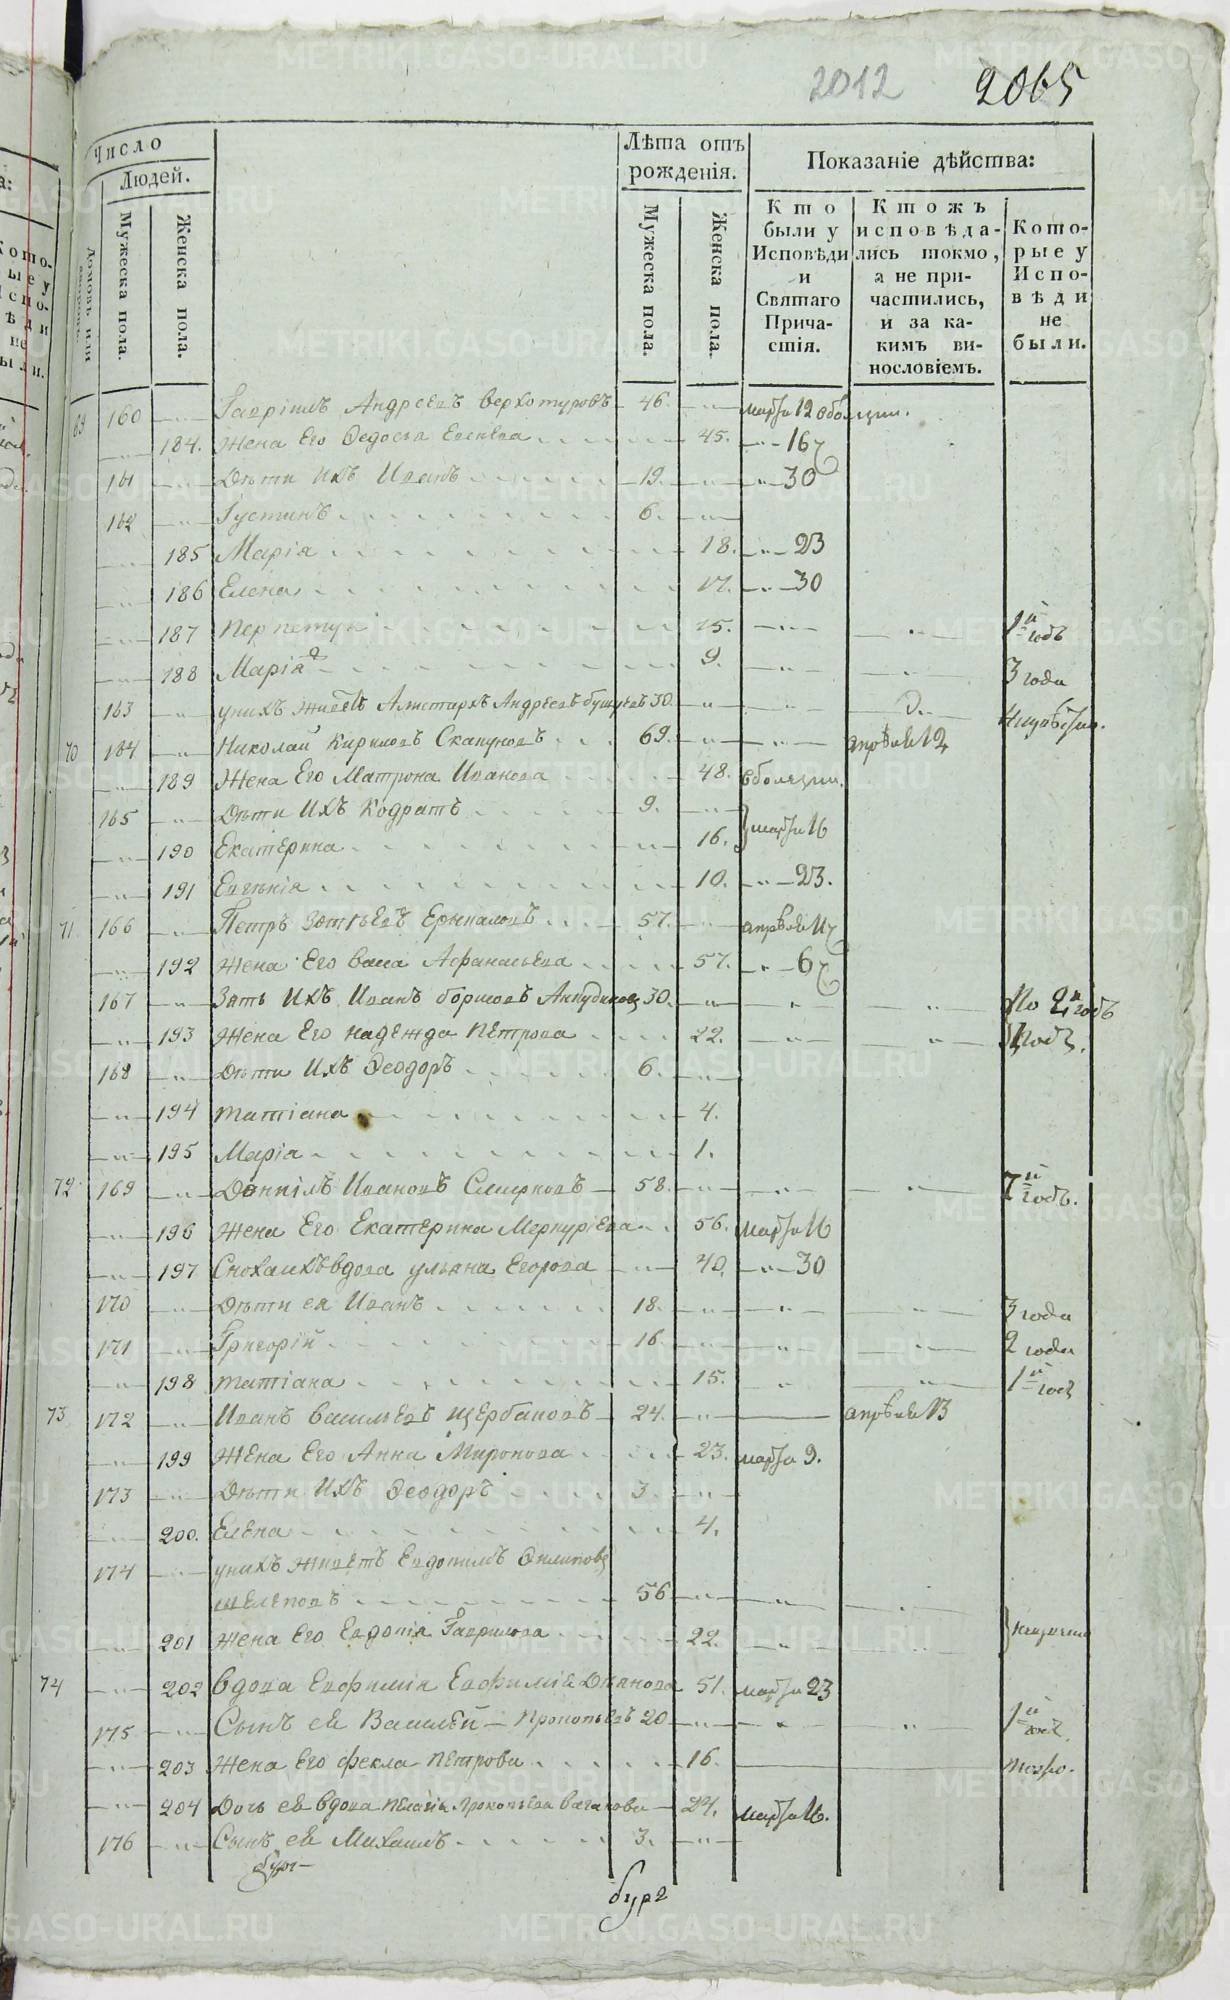 2012 2065
Число
Людей.
Лѣта отъ
рожденія.
Показаніе дѣйства:
Домовъ или
Мужеска пола.
Женска пола.
Мужеска пола.
Женска пола.
Кто
были у
Исповѣди
и
Святаго
Прича-
стія.
Ктожъ
исповѣда-
лись токмо,
а не при-
частились,
и за ка-
кимъ ви-
нословіемъ.
Кото-
рые у
Испо-
вѣди
не
были.
69 160 Гавріилъ Андреевъ Верхотуровъ 46. марта 12
184. Жена Его Федосья 45. 16
161 Дѣти Ихъ Иванъ 19. 30
162 Густинъ 6.
185 Марія 18. 23
186 Елена 17. 30
187 Перпетуя 15. 1й годъ
188 Марія 9. 3 года
163 у нихъ живетъ Аристархъ Андреевъ 30
70 164 Николай Кириловъ Скапуновъ 69. апреля 12
189 Жена Его Матрона Иванова 48. в болезни.
165 Дѣти Ихъ Кодратъ 9. марта 16
190 Екатерина 16.
191 Евгенія 10. 23.
71 166 Петръ Зотѣевъ 57. апреля
192 Жена Его Васса Афанасьева 57. 6
167 Зять Ихъ Иванъ Борисовъ 30. По 2й годъ
193 Жена Его Надежда Петрова 22. годъ.
168 Дѣти Ихъ Феодоръ 6.
194 Татіана 4.
195 Марія 1.
72 169 Даніилъ Ивановъ Смирновъ 58. 7й годъ.
196 Жена Его Екатерина Меркуріева 56. марта 16
197 Сноха ихъ вдова Ульяна Егорова 40. 30
170 Дѣти ея Иванъ 18. 3 года
171 Григорій 16. 2 года
198 Татіана 15. 1й годъ
73 172 Иванъ Васильевъ Щербаковъ 24. апреля 13
199 Жена Его Анна Миронова 23. марта 9.
173 Дѣти Ихъ Феодоръ 3.
200. Елена 4.
174 у нихъ живетъ Евдокимъ Филиповъ
56
201 Жена Его Евдокія Гаврилова 22.
74 202 Вдова Евфимія 51. марта 23
175 Сынъ ея Василей Прокопьевъ 20 1й годъ.
203 Жена Его Фекла Петрова 16. тоже.
204 Дочь ея вдова Пелагія Прокопьева 24. марта 16.
176 Сынъ ея Михаилъ 3.
METRIKI.GASO-URAL.RU